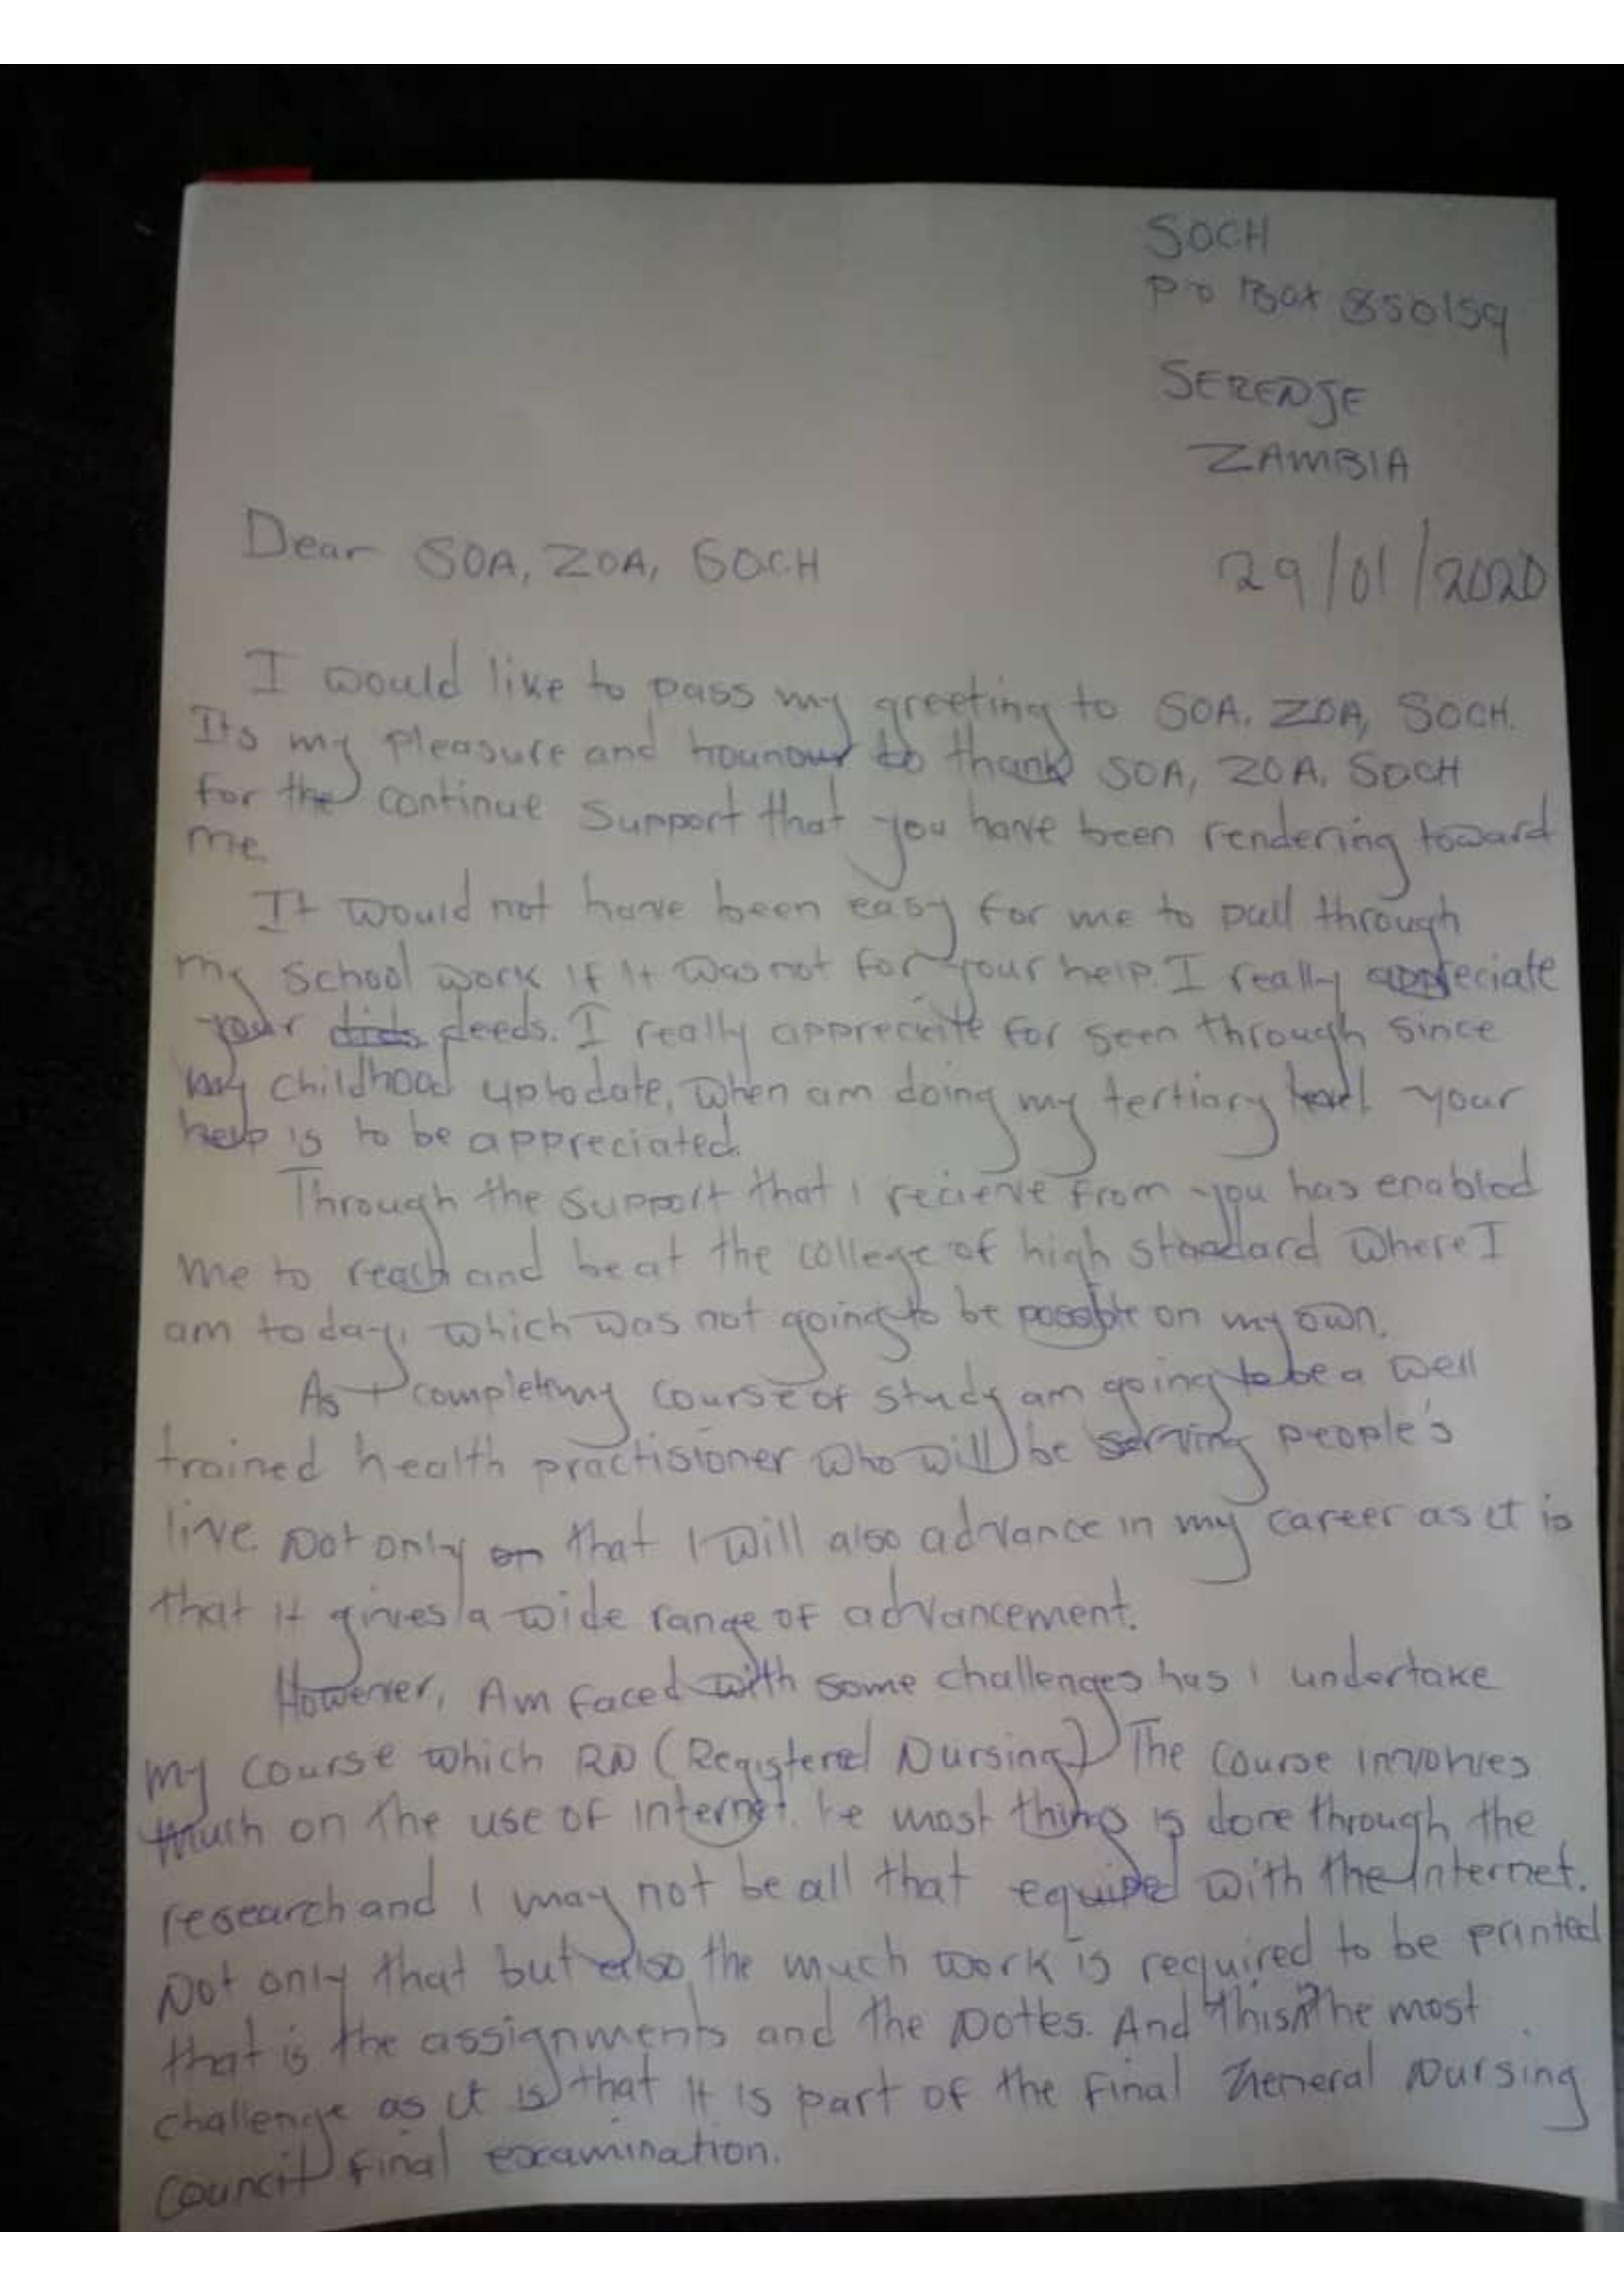 SOCH
P.o Box 850159
SERENJE
ZAMBIA
Dear SOA, ZOA, SOCH
29/01/2020
I would like to pass my greeting to SOA, ZOA, SOCH.
Its my pleasure and hounour to thank SOA, ZOA, SOCH
for the continue support that you have been rendering toward
me.
It would not have been easy for me to pull through
my school work if it was not for your help. I really appreciate
your deeds. I really appreciate for seen through since
my childhood uptodate, when am doing my tertiary level your
help is to be appreciated.
Through the support that i recieve from you has enabled
me to reach and be at the college of high standard where I
am today, which was not going to be possible on my own.
As I complete my course of study am going to be a well
trained health practisioner who will be serving people's
live. Not only on that I will also advance in my career as it is
that it gives a wide range of advancement.
However, Am faced with some challenges has i undertake
my course which RN (Registered Nursing) The course involves
much on the use of internet. Ie most things is done through the
research and I may not be all that equiped with the internet.
Not only that but also the much work is required to be printed
that is the assignments and the Notes. And this the most
challenge as it is that it is part of the final General Nursing
Council final examination.